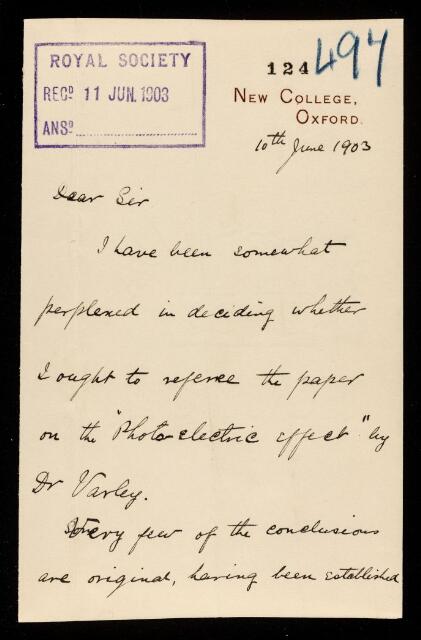 ROYAL SOCIETY
RECD 11 JUN. 1903
ANSD
124
497
NEW COLLEGE,
OXFORD.
10th June 1903
Dear Sir
I have been somewhat
perplexed in deciding whether
I ought to referee the paper
on the "Photo-electric effect" by
Dr Varley.
Very few of the conclusions
are original, having been established